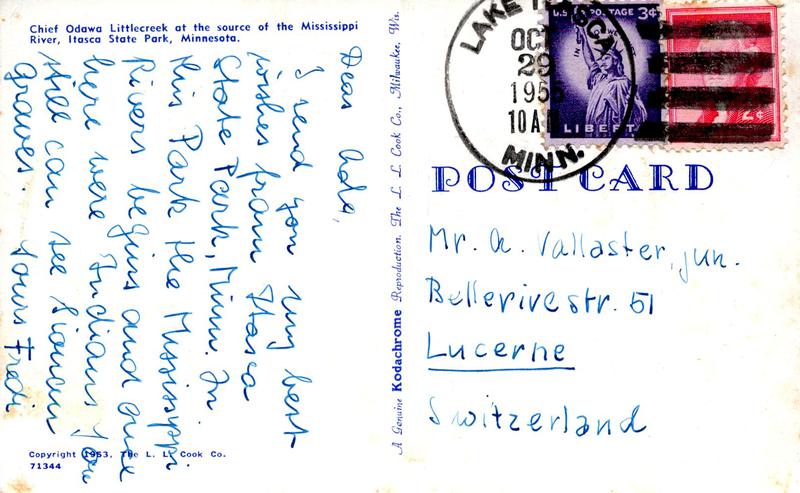 Chief Odawa Littlecreek at the source of the Mississippi
River, Itasca State Park, Minnesota.
Dear Adolo,
I send you my best
wishes from Itasca
State Park, Minn. In
this Park the Mississippi
Rivers begins and once
here were Indians. You
still can see Siouxen
graves. Yours Fredi
Copyright 1953, The L. L. Cook Co.
71344
A Genuine Kodachrome Reproduction. The L. L. Cook Co., Milwaukee, Wis.
LAKE ITASCA
OCT
29
1956
10 AM
MINN.
U.S. POSTAGE 3¢
LIBERTY
2¢
POST CARD
Mr. A. Vallaster, jun.
Bellerivestr. 51
Lucerne
Switzerland